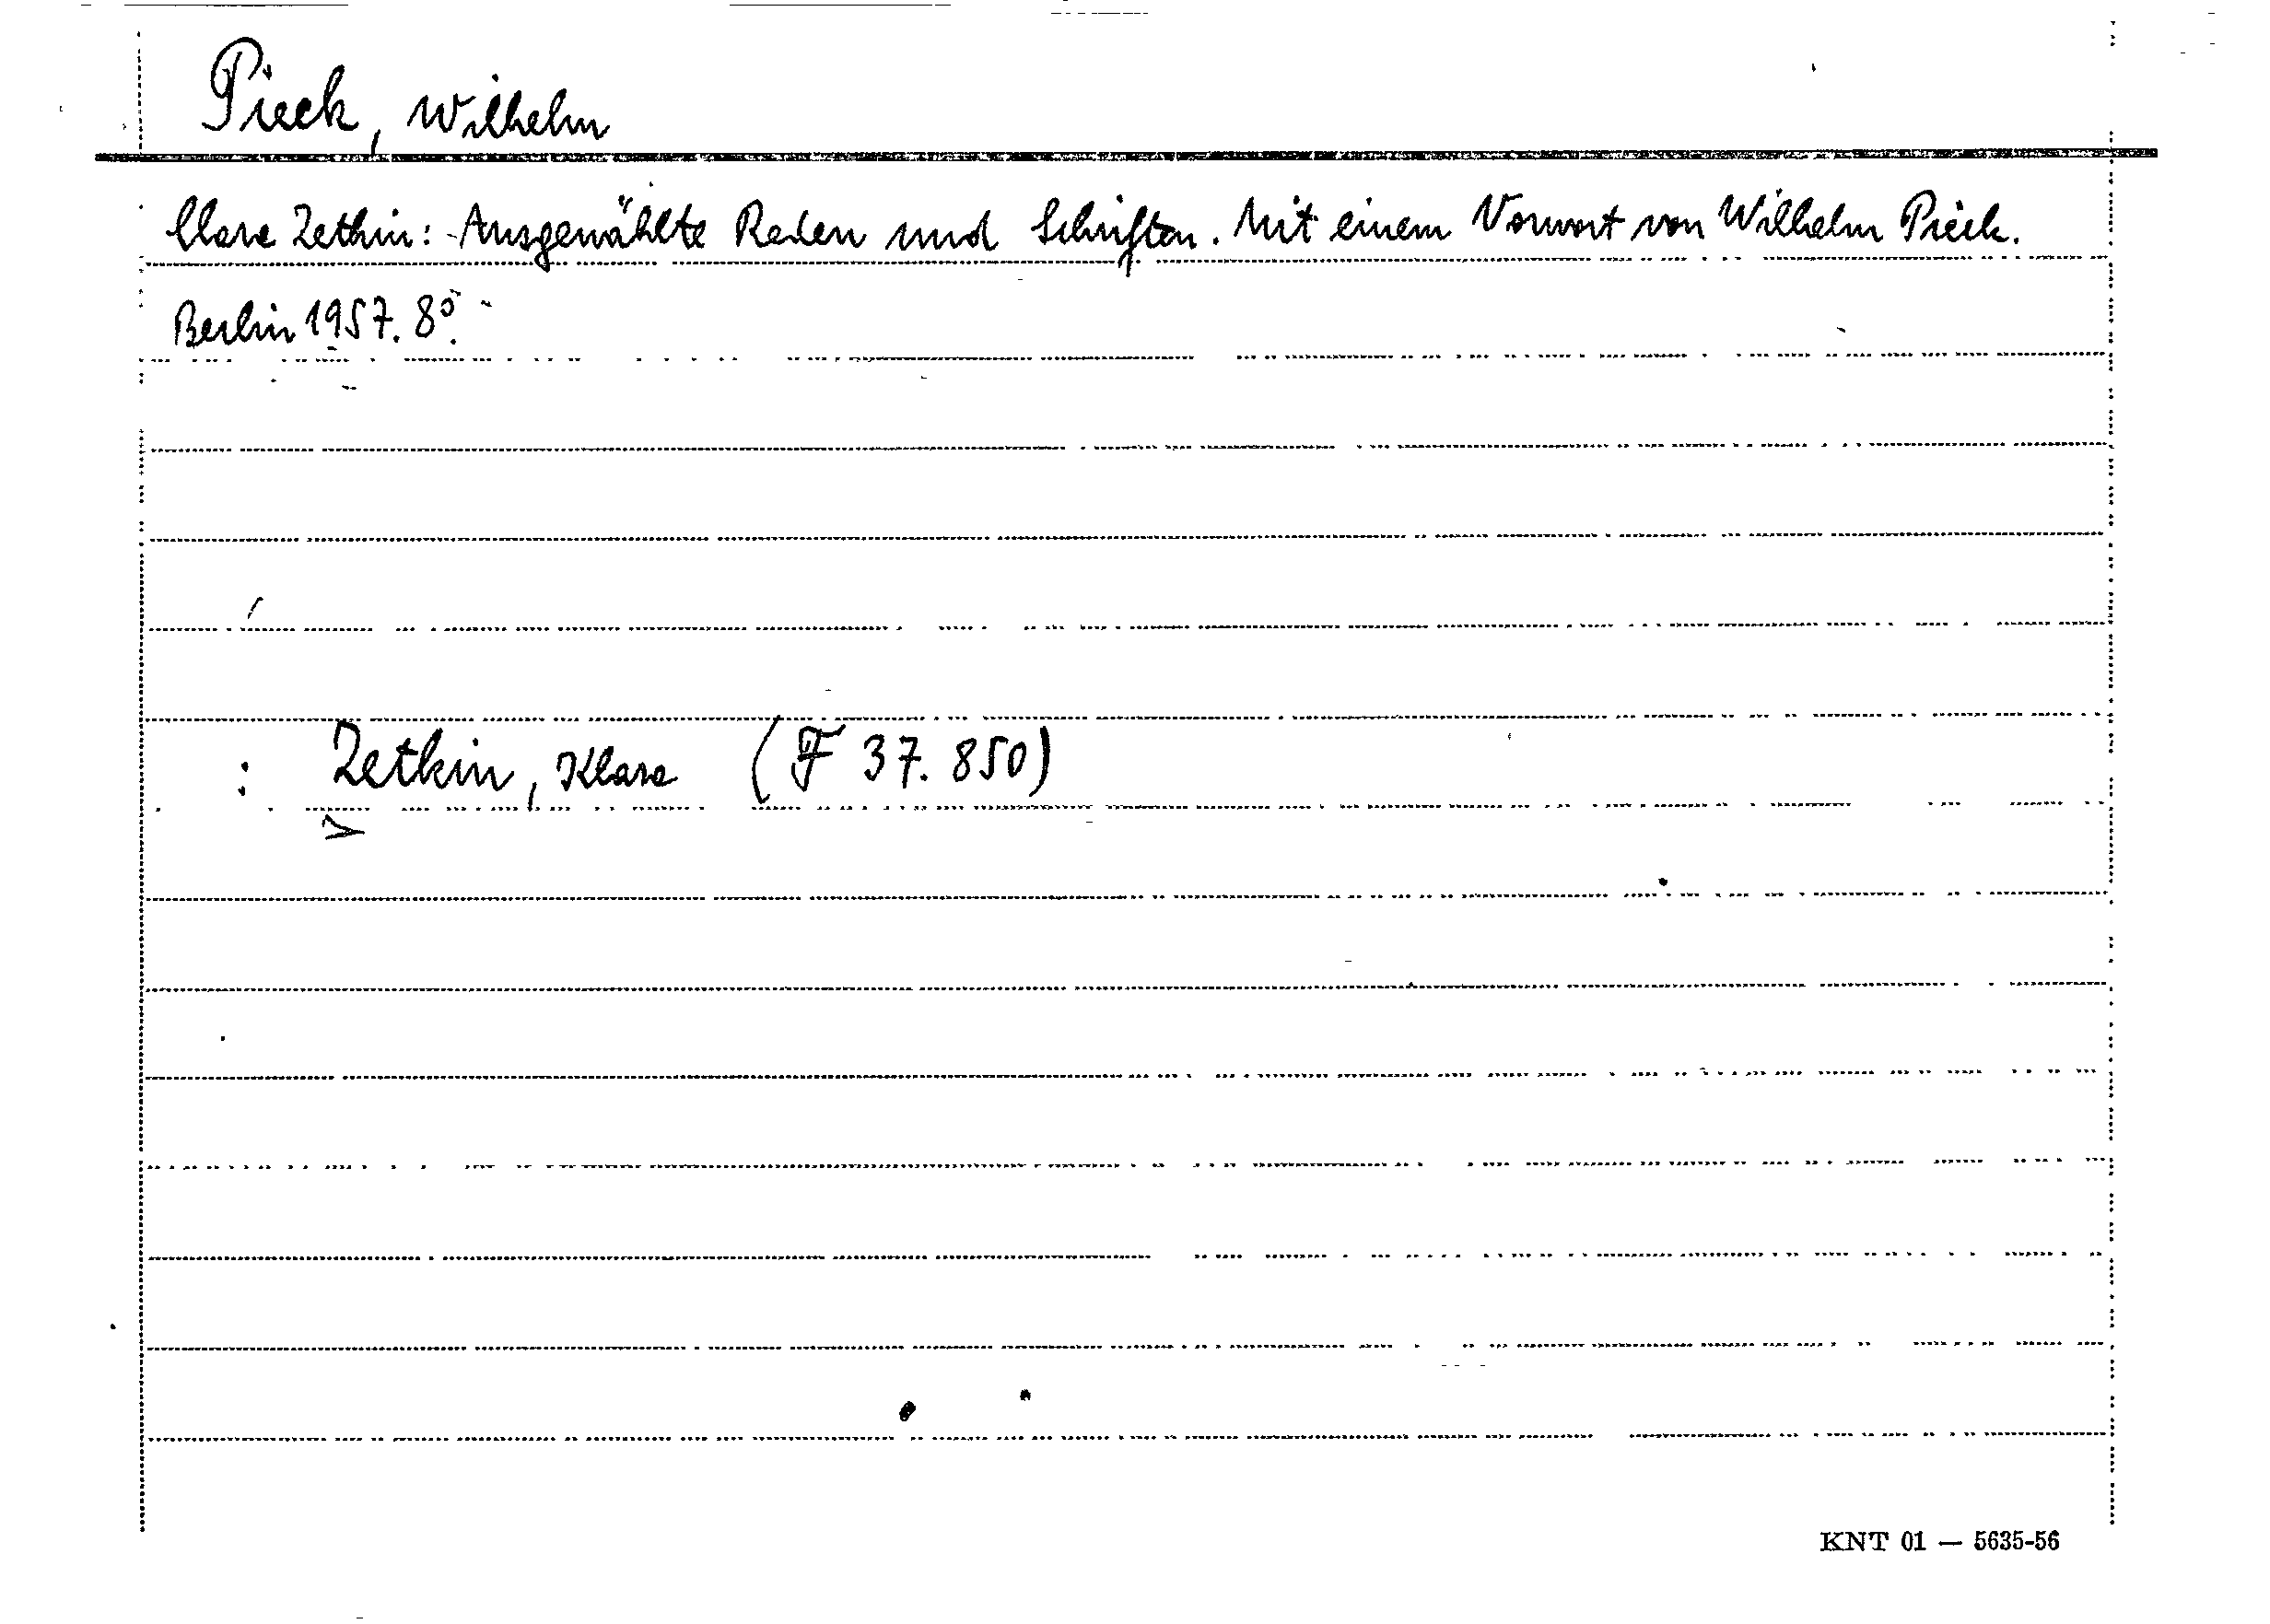 Pieck, Wilhelm
Clara Zetkin: Ausgewählte Reden und Schriften. Mit einem Vorwort von Wilhelm Pieck.
Berlin 1957. 8°.
: Zetkin, Klara (F 37. 850)
KNT 01 — 5635-56